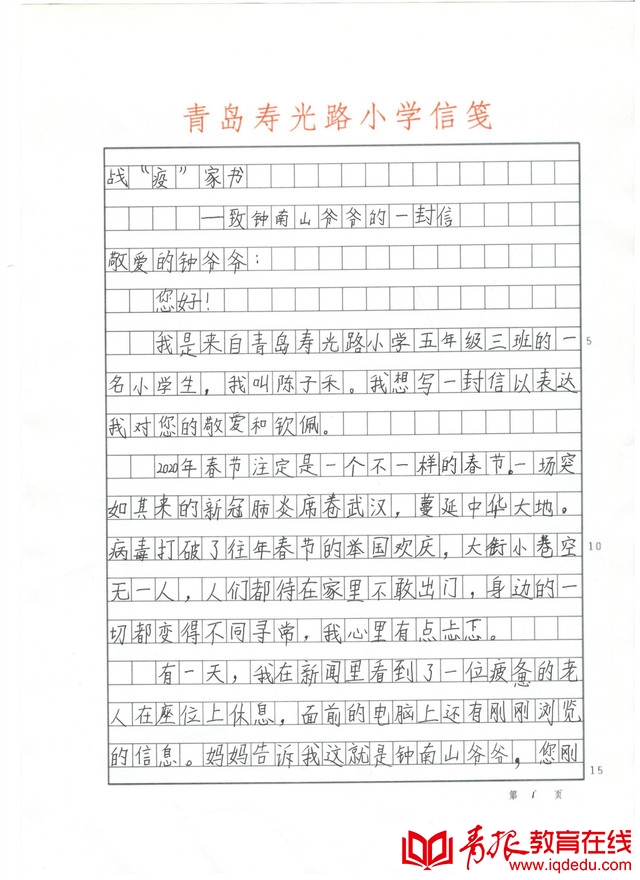 青岛寿光路小学信笺
战“疫”家书
——致钟南山爷爷的一封信
敬爱的钟爷爷：
您好！
我是来自青岛寿光路小学五年级三班的一
名小学生，我叫陈子禾。我想写一封信以表达
我对您的敬爱和钦佩。
2020年春节注定是一个不一样的春节。一场突
如其来的新冠肺炎席卷武汉，蔓延中华大地。
病毒打破了往年春节的举国欢庆，大街小巷空
无一人，人们都待在家里不敢出门，身边的一
切都变得不同寻常，我心里有点忐忑。
有一天，我在新闻里看到了一位疲惫的老
人在座位上休息，面前的电脑上还有刚刚浏览
的信息。妈妈告诉我这就是钟南山爷爷，您刚
5
10
15
第 1 页
青报教育在线
www.iqdedu.com